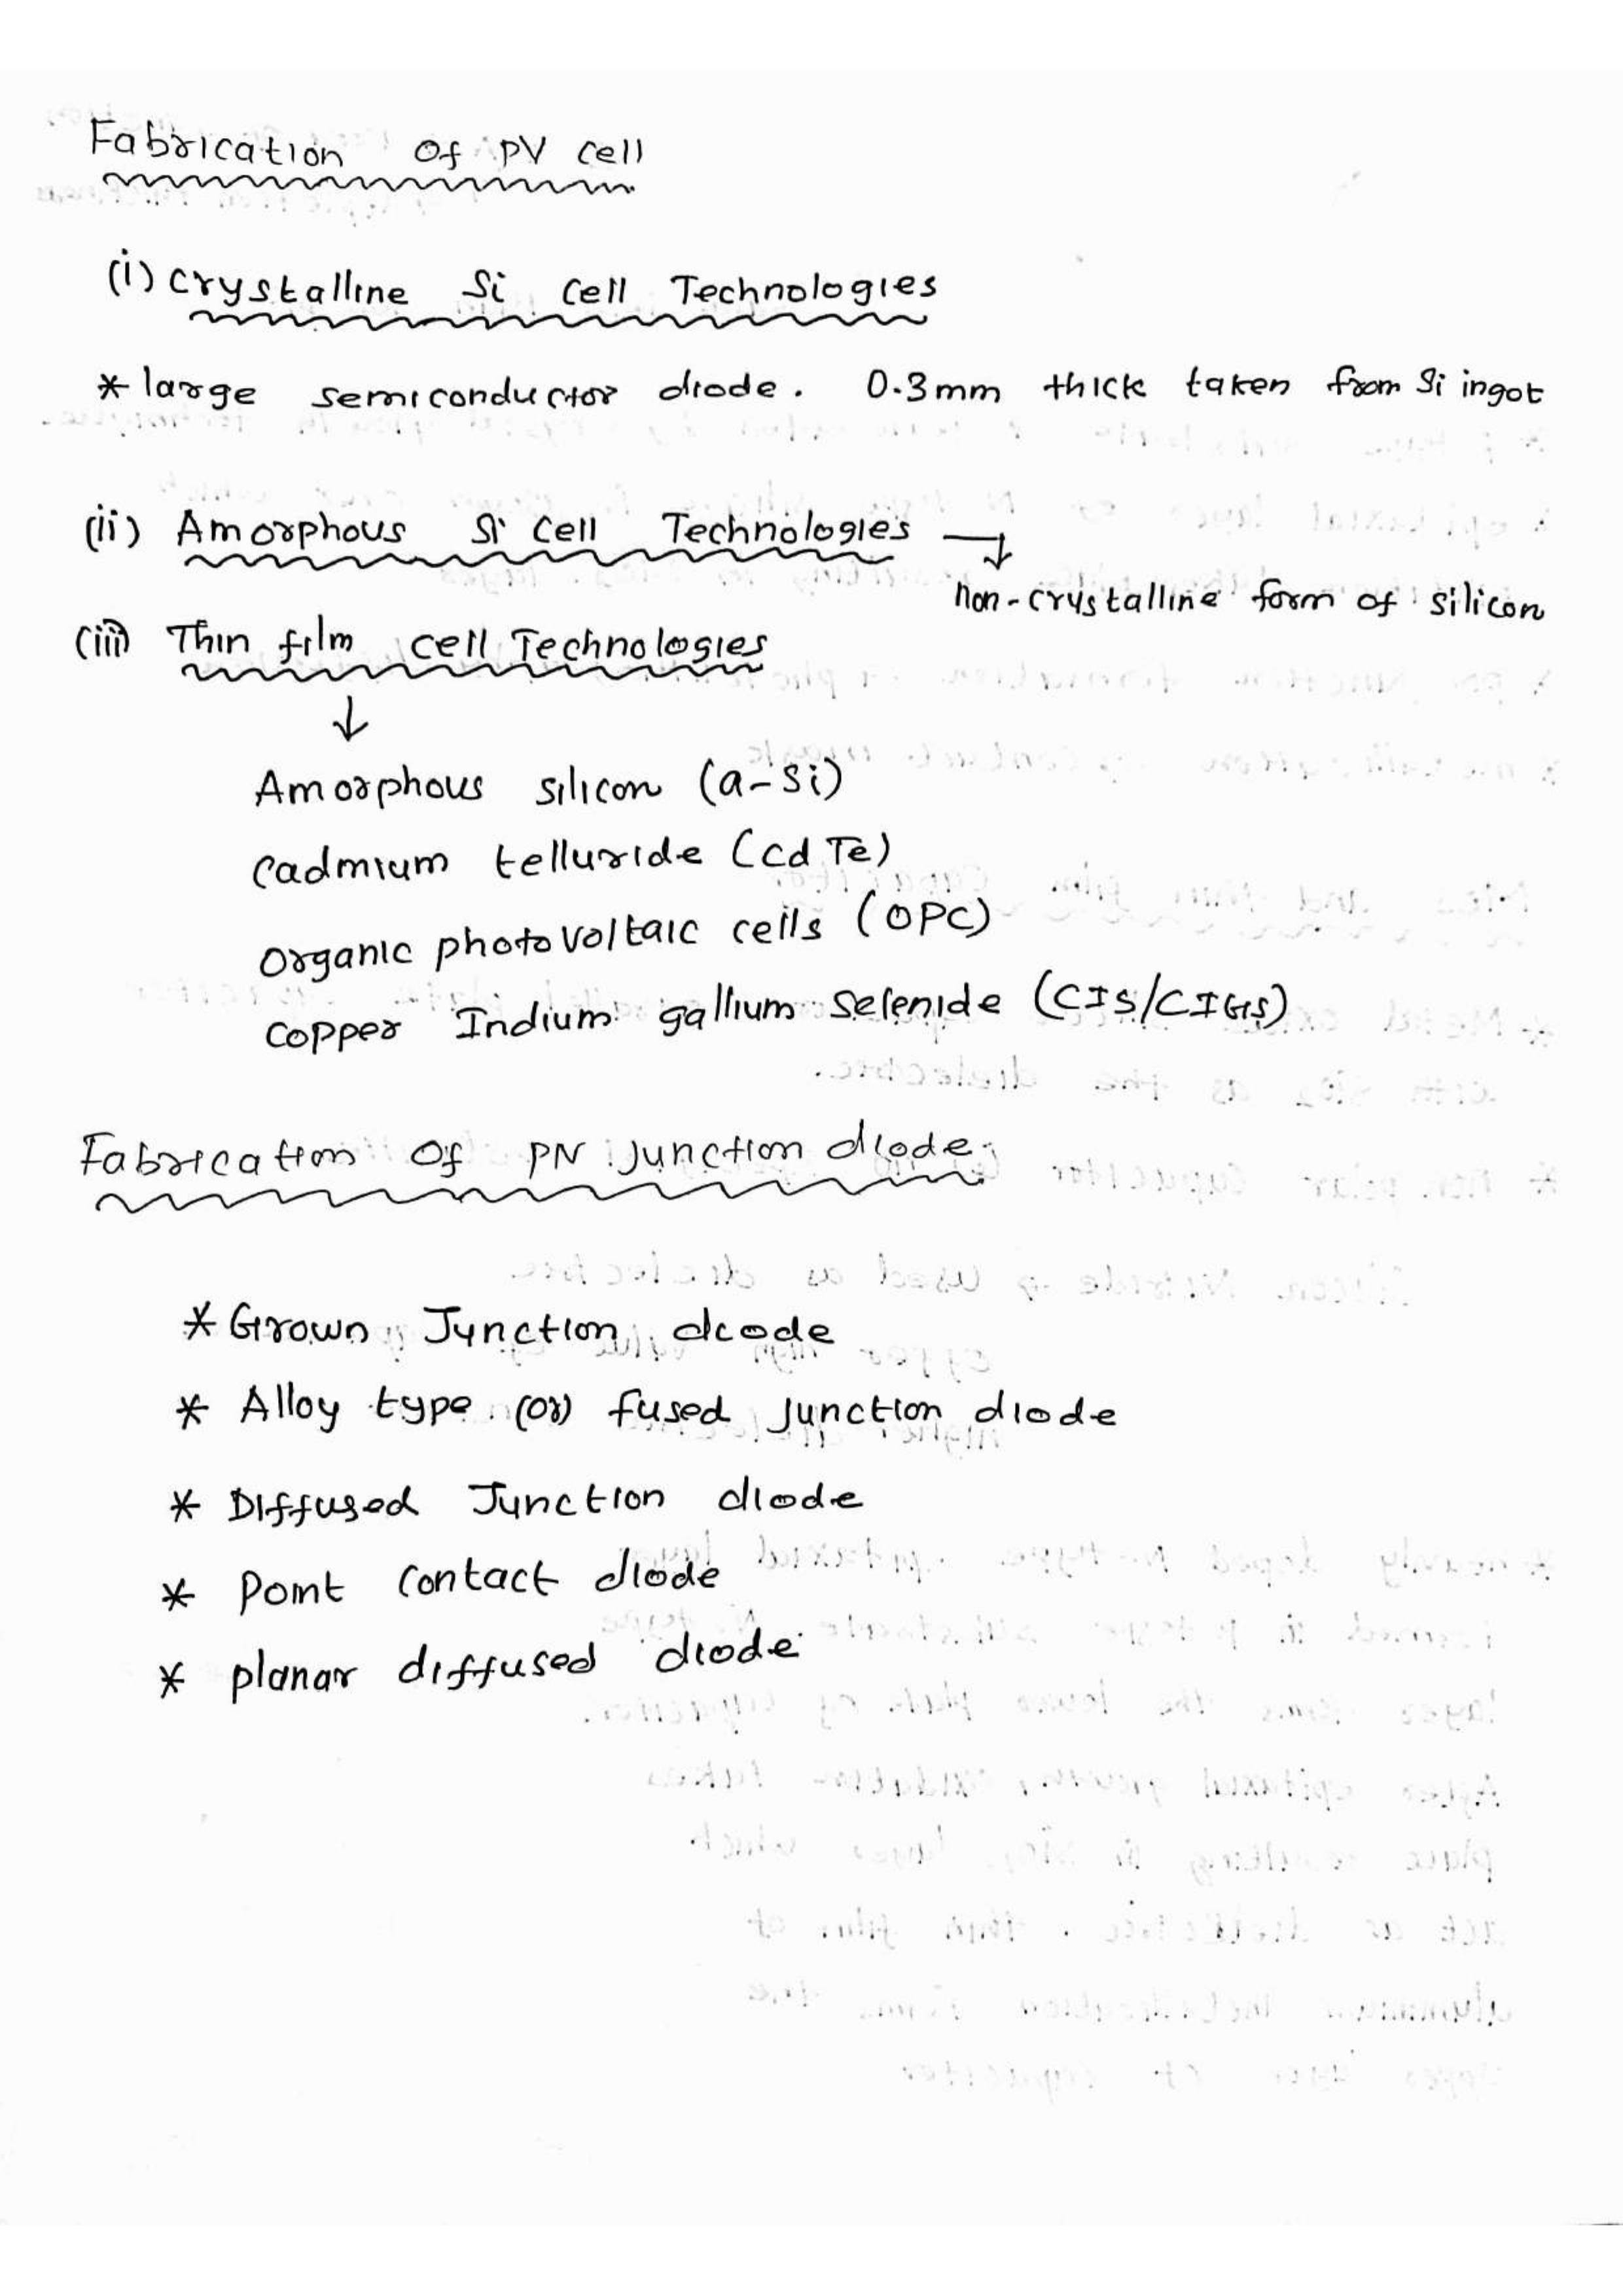 Fabrication of PV cell
(i) Crystalline Si Cell Technologies
* large semiconductor diode. 0.3mm thick taken from Si ingot
(ii) Amorphous Si Cell Technologies →
non-crystalline form of silicon
(iii) Thin film cell Technologies
↓
Amorphous silicon (a-Si)
Cadmium telluride (Cd Te)
Organic photovoltaic cells (OPC)
Copper Indium gallium Selenide (CIS/CIGS)
Fabrication Of PN Junction diode
* Grown Junction diode
* Alloy type (or) fused junction diode
* Diffused Junction diode
* Point Contact diode
* planar diffused diode